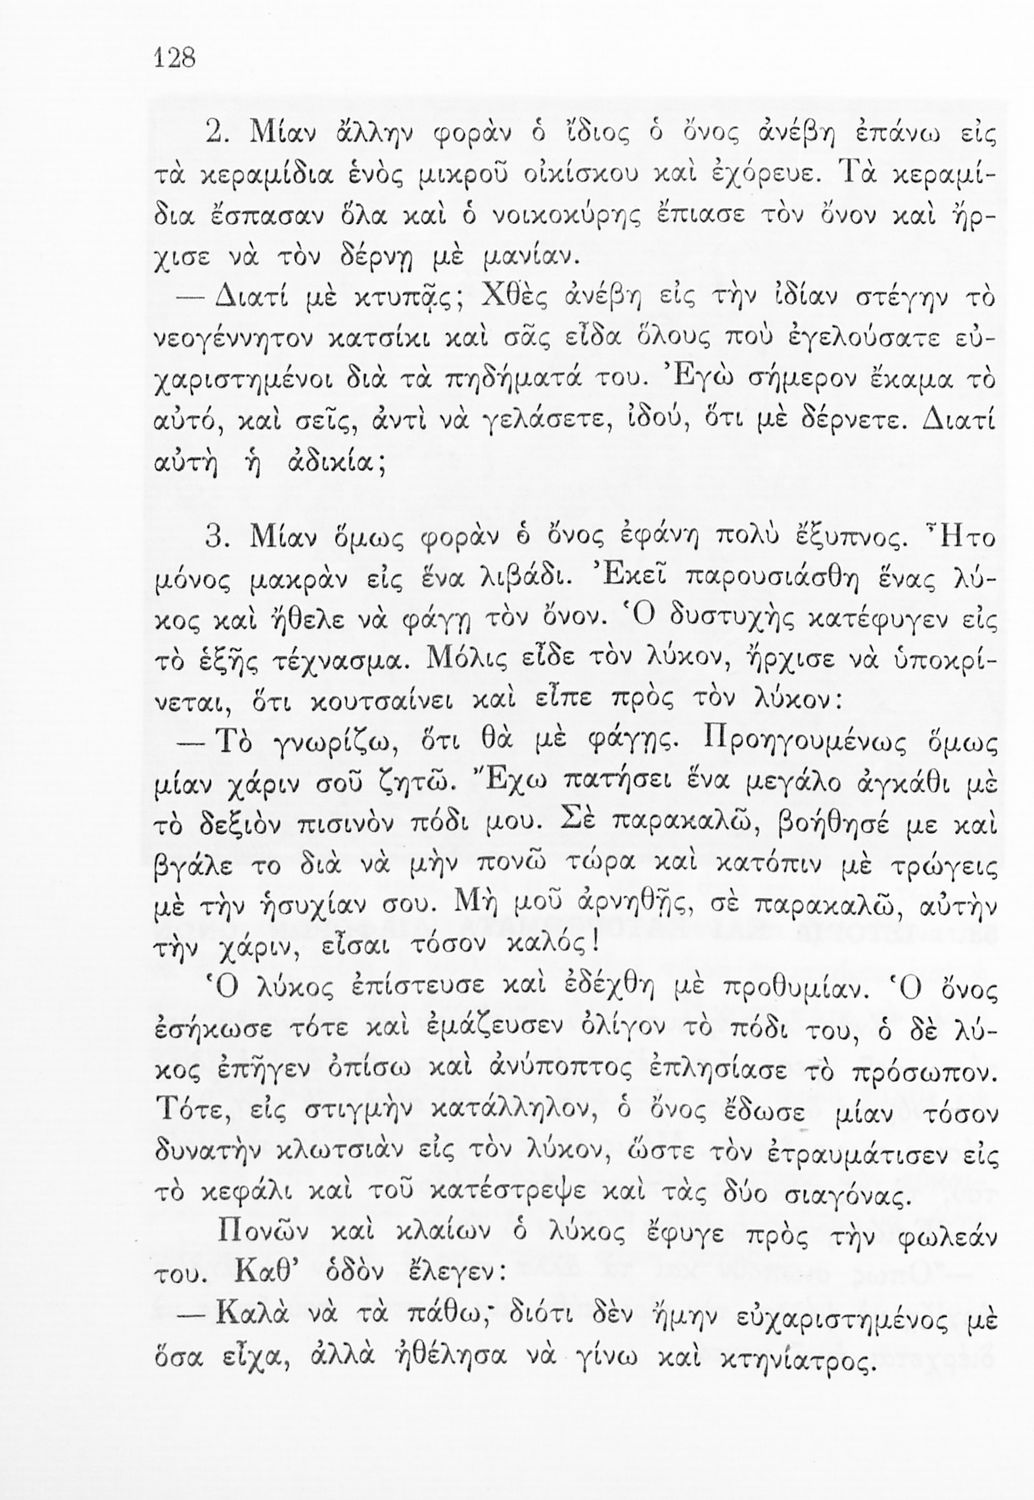 128
2. Μίαν ἄλλην φορὰν ὁ ἴδιος ὁ ὄνος ἀνέβη ἐπάνω εἰς
τὰ κεραμίδια ἑνὸς μικροῦ οἰκίσκου καὶ ἐχόρευε. Τὰ κεραμί-
δια ἔσπασαν ὅλα καὶ ὁ νοικοκύρης ἔπιασε τὸν ὄνον καὶ ἤρ-
χισε νὰ τὸν δέρνῃ μὲ μανίαν.
— Διατί μὲ κτυπᾷς; Χθὲς ἀνέβη εἰς τὴν ἰδίαν στέγην τὸ
νεογέννητον κατσίκι καὶ σᾶς εἶδα ὅλους ποὺ ἐγελούσατε εὐ-
χαριστημένοι διὰ τὰ πηδήματά του. Ἐγὼ σήμερον ἔκαμα τὸ
αὐτό, καὶ σεῖς, ἀντὶ νὰ γελάσετε, ἰδού, ὅτι μὲ δέρνετε. Διατί
αὐτὴ ἡ ἀδικία;
3. Μίαν ὅμως φορὰν ὁ ὄνος ἐφάνη πολὺ ἔξυπνος. Ἦτο
μόνος μακρὰν εἰς ἕνα λιβάδι. Ἐκεῖ παρουσιάσθη ἕνας λύ-
κος καὶ ἤθελε νὰ φάγῃ τὸν ὄνον. Ὁ δυστυχὴς κατέφυγεν εἰς
τὸ ἑξῆς τέχνασμα. Μόλις εἶδε τὸν λύκον, ἤρχισε νὰ ὑποκρί-
νεται, ὅτι κουτσαίνει καὶ εἶπε πρὸς τὸν λύκον:
— Τὸ γνωρίζω, ὅτι θὰ μὲ φάγῃς. Προηγουμένως ὅμως
μίαν χάριν σοῦ ζητῶ. Ἔχω πατήσει ἕνα μεγάλο ἀγκάθι μὲ
τὸ δεξιὸν πισινὸν πόδι μου. Σὲ παρακαλῶ, βοήθησέ με καὶ
βγάλε το διὰ νὰ μὴν πονῶ τώρα καὶ κατόπιν μὲ τρώγεις
μὲ τὴν ἡσυχίαν σου. Μὴ μοῦ ἀρνηθῇς, σὲ παρακαλῶ, αὐτὴν
τὴν χάριν, εἶσαι τόσον καλός!
Ὁ λύκος ἐπίστευσε καὶ ἐδέχθη μὲ προθυμίαν. Ὁ ὄνος
ἐσήκωσε τότε καὶ ἐμάζευσεν ὀλίγον τὸ πόδι του, ὁ δὲ λύ-
κος ἐπῆγεν ὀπίσω καὶ ἀνύποπτος ἐπλησίασε τὸ πρόσωπον.
Τότε, εἰς στιγμὴν κατάλληλον, ὁ ὄνος ἔδωσε μίαν τόσον
δυνατὴν κλωτσιὰν εἰς τὸν λύκον, ὥστε τὸν ἐτραυμάτισεν εἰς
τὸ κεφάλι καὶ τοῦ κατέστρεψε καὶ τὰς δύο σιαγόνας.
Πονῶν καὶ κλαίων ὁ λύκος ἔφυγε πρὸς τὴν φωλεάν
του. Καθ’ ὁδὸν ἔλεγεν:
— Καλὰ νὰ τὰ πάθω; διότι δὲν ἤμην εὐχαριστημένος μὲ
ὅσα εἶχα, ἀλλὰ ἠθέλησα νὰ γίνω καὶ κτηνίατρος.